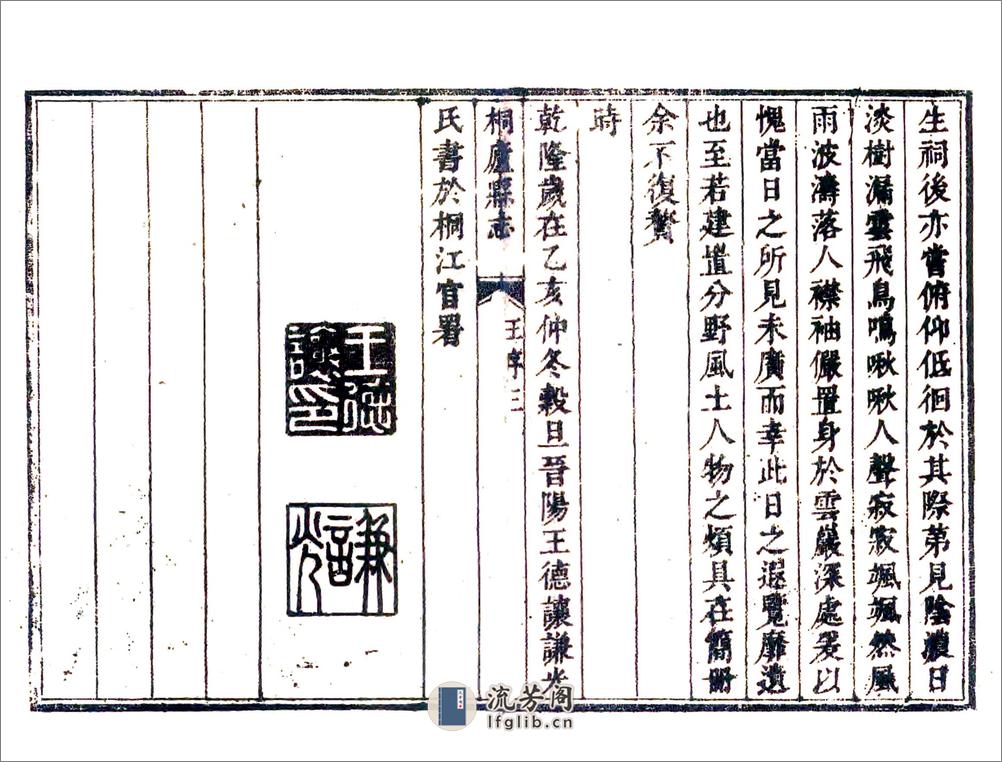 生祠後亦嘗俯仰低徊於其際第見陰濃日
淡樹漏雲飛鳥鳴啾啾人聲寂寂颯颯然風
雨波濤落人襟袖儼置身於雲巖深處爰以
愧當日之所見未廣而幸此日之遐覽靡遺
也至若建置分野風土人物之煩具在簡冊
余不復贅
時
乾隆歲在乙亥仲冬穀旦晉陽王德讓謙光
桐廬縣志
王序三
氏書於桐江官署
王德讓印
謙光
流芳阁
lfglib.cn